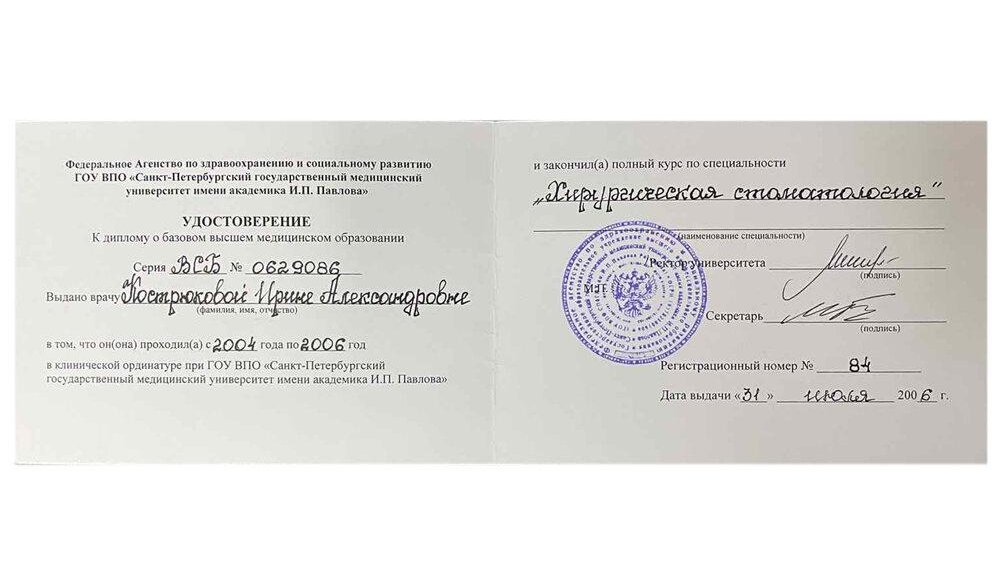 Федеральное Агенство по здравоохранению и социальному развитию
ГОУ ВПО «Санкт-Петербургский государственный медицинский
университет имени академика И.П. Павлова»
УДОСТОВЕРЕНИЕ
К диплому о базовом высшем медицинском образовании
Серия ВСБ № 0629086
Выдано врачу Кострюковой Ирине Александровне
(фамилия, имя, отчество)
в том, что он(она) проходил(а) с 2004 года по 2006 год
в клинической ординатуре при ГОУ ВПО «Санкт-Петербургский
государственный медицинский университет имени академика И.П. Павлова»
и закончил(а) полный курс по специальности
„Хирургическая стоматология"
(наименование специальности)
Ректор университета
(подпись)
М.П.
Секретарь
(подпись)
Регистрационный номер № 84
Дата выдачи «31» июля 2006 г.